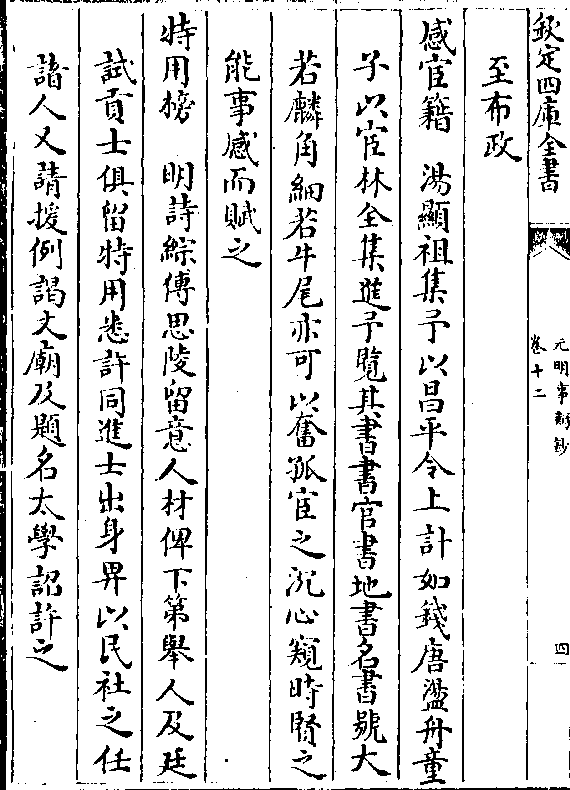 欽定四庫全書
元明事類鈔
卷十二
四
至布政
感宦籍　湯顯祖集予以昌平令上計如錢唐灩舟童
子以宦林全集進予覽其書書官書地書名書號大
若麟角細若牛尾亦可以奮孤宦之沉心窺時賢之
能事感而賦之
特用榜　明詩綜傳思陵留意人材俾下第舉人及廷
試貢士俱留特用悉許同進士出身畀以民社之任
諸人又請援例謁文廟及題名太學詔許之